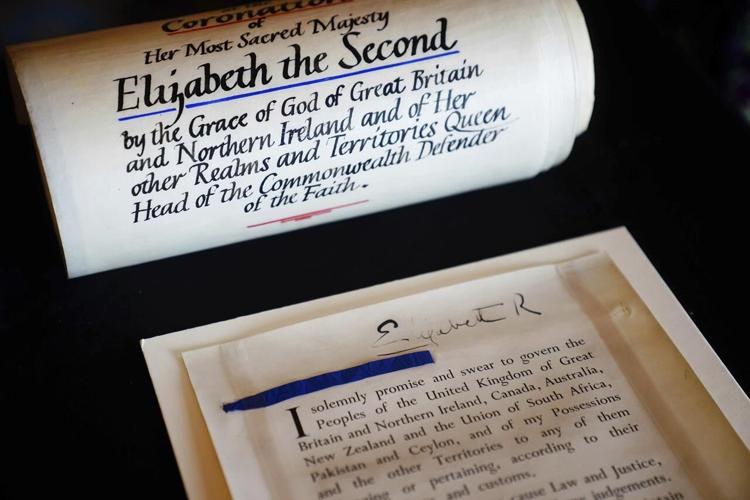 Coronation
of
Her Most Sacred Majesty
Elizabeth the Second
by the Grace of God of Great Britain
and Northern Ireland and of Her
other Realms and Territories Queen
Head of the Commonwealth Defender
of the Faith.
Elizabeth R
I solemnly promise and swear to govern the
Peoples of the United Kingdom of Great
Britain and Northern Ireland, Canada, Australia,
New Zealand and the Union of South Africa,
Pakistan and Ceylon, and of my Possessions
and the other Territories to any of them
or pertaining, according to their
and customs.
cause Law and Justice,
judgements.